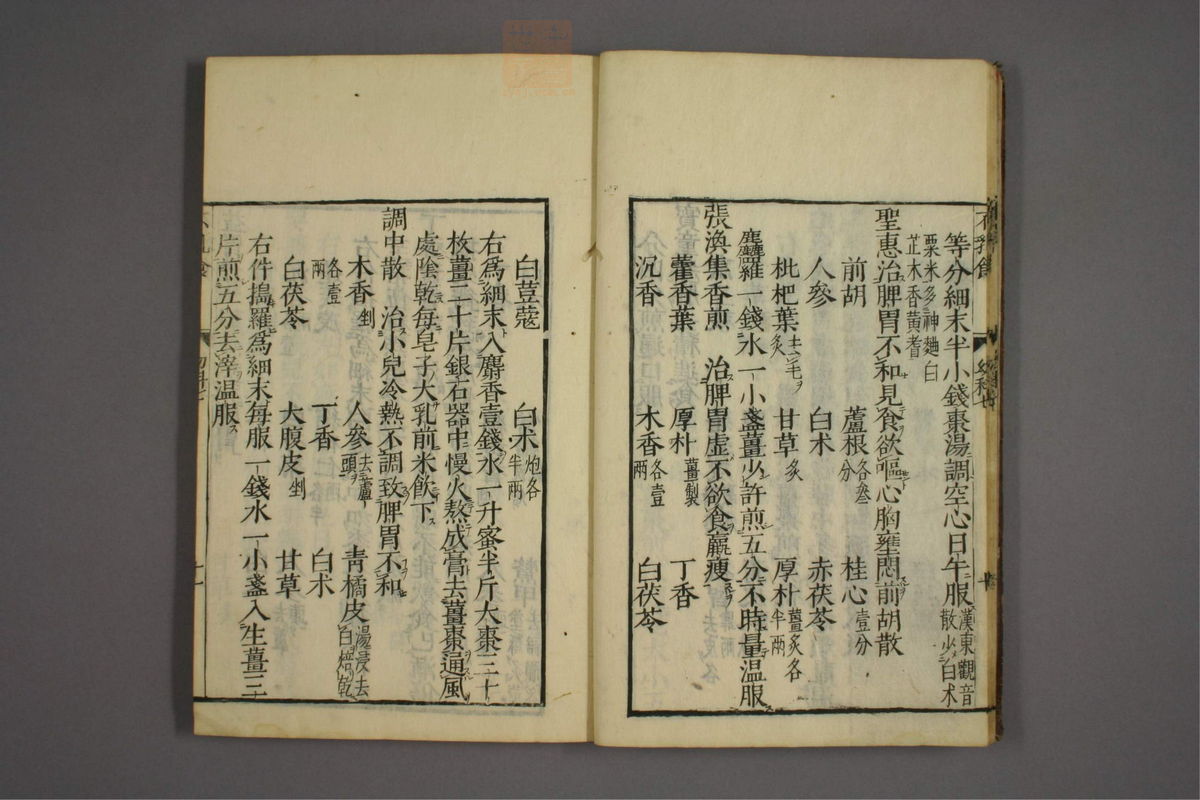 等分細末半小錢棗湯調空心日午服漢東觀音散少白术
粟米多神麯白芷木香黃耆
聖惠治脾胃不和見食欲嘔心胸壅悶前胡散
前胡 蘆根各叄分 桂心壹分
人參 白术 赤茯苓
枇杷葉去毛炙 甘草炙 厚朴薑炙各半兩
麤羅一錢水一小盞薑少許煎五分不時量温服
張渙集香煎 治脾胃虛不欲食羸瘦
藿香葉 厚朴薑製 丁香
沉香 木香各壹兩 白茯苓
白荳蔻 白术炮各半兩
右爲細末入麝香壹錢水一升蜜半斤大棗三十
枚薑二十片銀石器中慢火熬成膏去薑棗通風
處陰乾每皂子大乳前米飲下
調中散 治小兒冷熱不調致脾胃不和
木香剉 人參去蘆頭 青橘皮湯浸去白焙乾
各壹兩 丁香 白术
白茯苓 大腹皮剉 甘草
右件搗羅爲細末每服一錢水一小盞入生薑三
片煎五分去滓温服